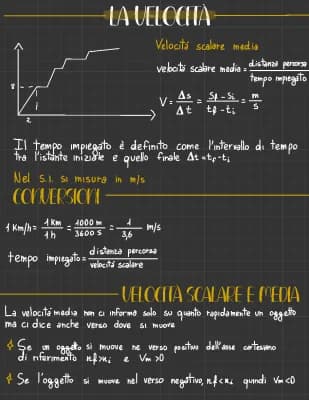 LA VELOCITÀ
Velocità scalare media
velocità scalare media = distanza percorsa / tempo impiegato
V = Δs / Δt = Sf - Si / tf - ti = m / s
8
i
2
Il tempo impiegato è definito come l'intervallo di tempo
tra l'istante iniziale e quello finale Δt = tf - ti
Nel S.I. si misura in m/s
CONVERSIONI
1 Km/h = 1 Km / 1 h = 1000 m / 3600 s = 1 / 3,6 m/s
tempo impiegato = distanza percorsa / velocità scalare
VELOCITÀ SCALARE E MEDIA
La velocità media non ci informa solo su quanto rapidamente un oggetto
ma ci dice anche verso dove si muove
Se un oggetto si muove ne verso positivo dell'asse cartesiano
di riferimento xf > xi e Vm > 0
Se l'oggetto si muove nel verso negativo, xf < xi quindi Vm < 0